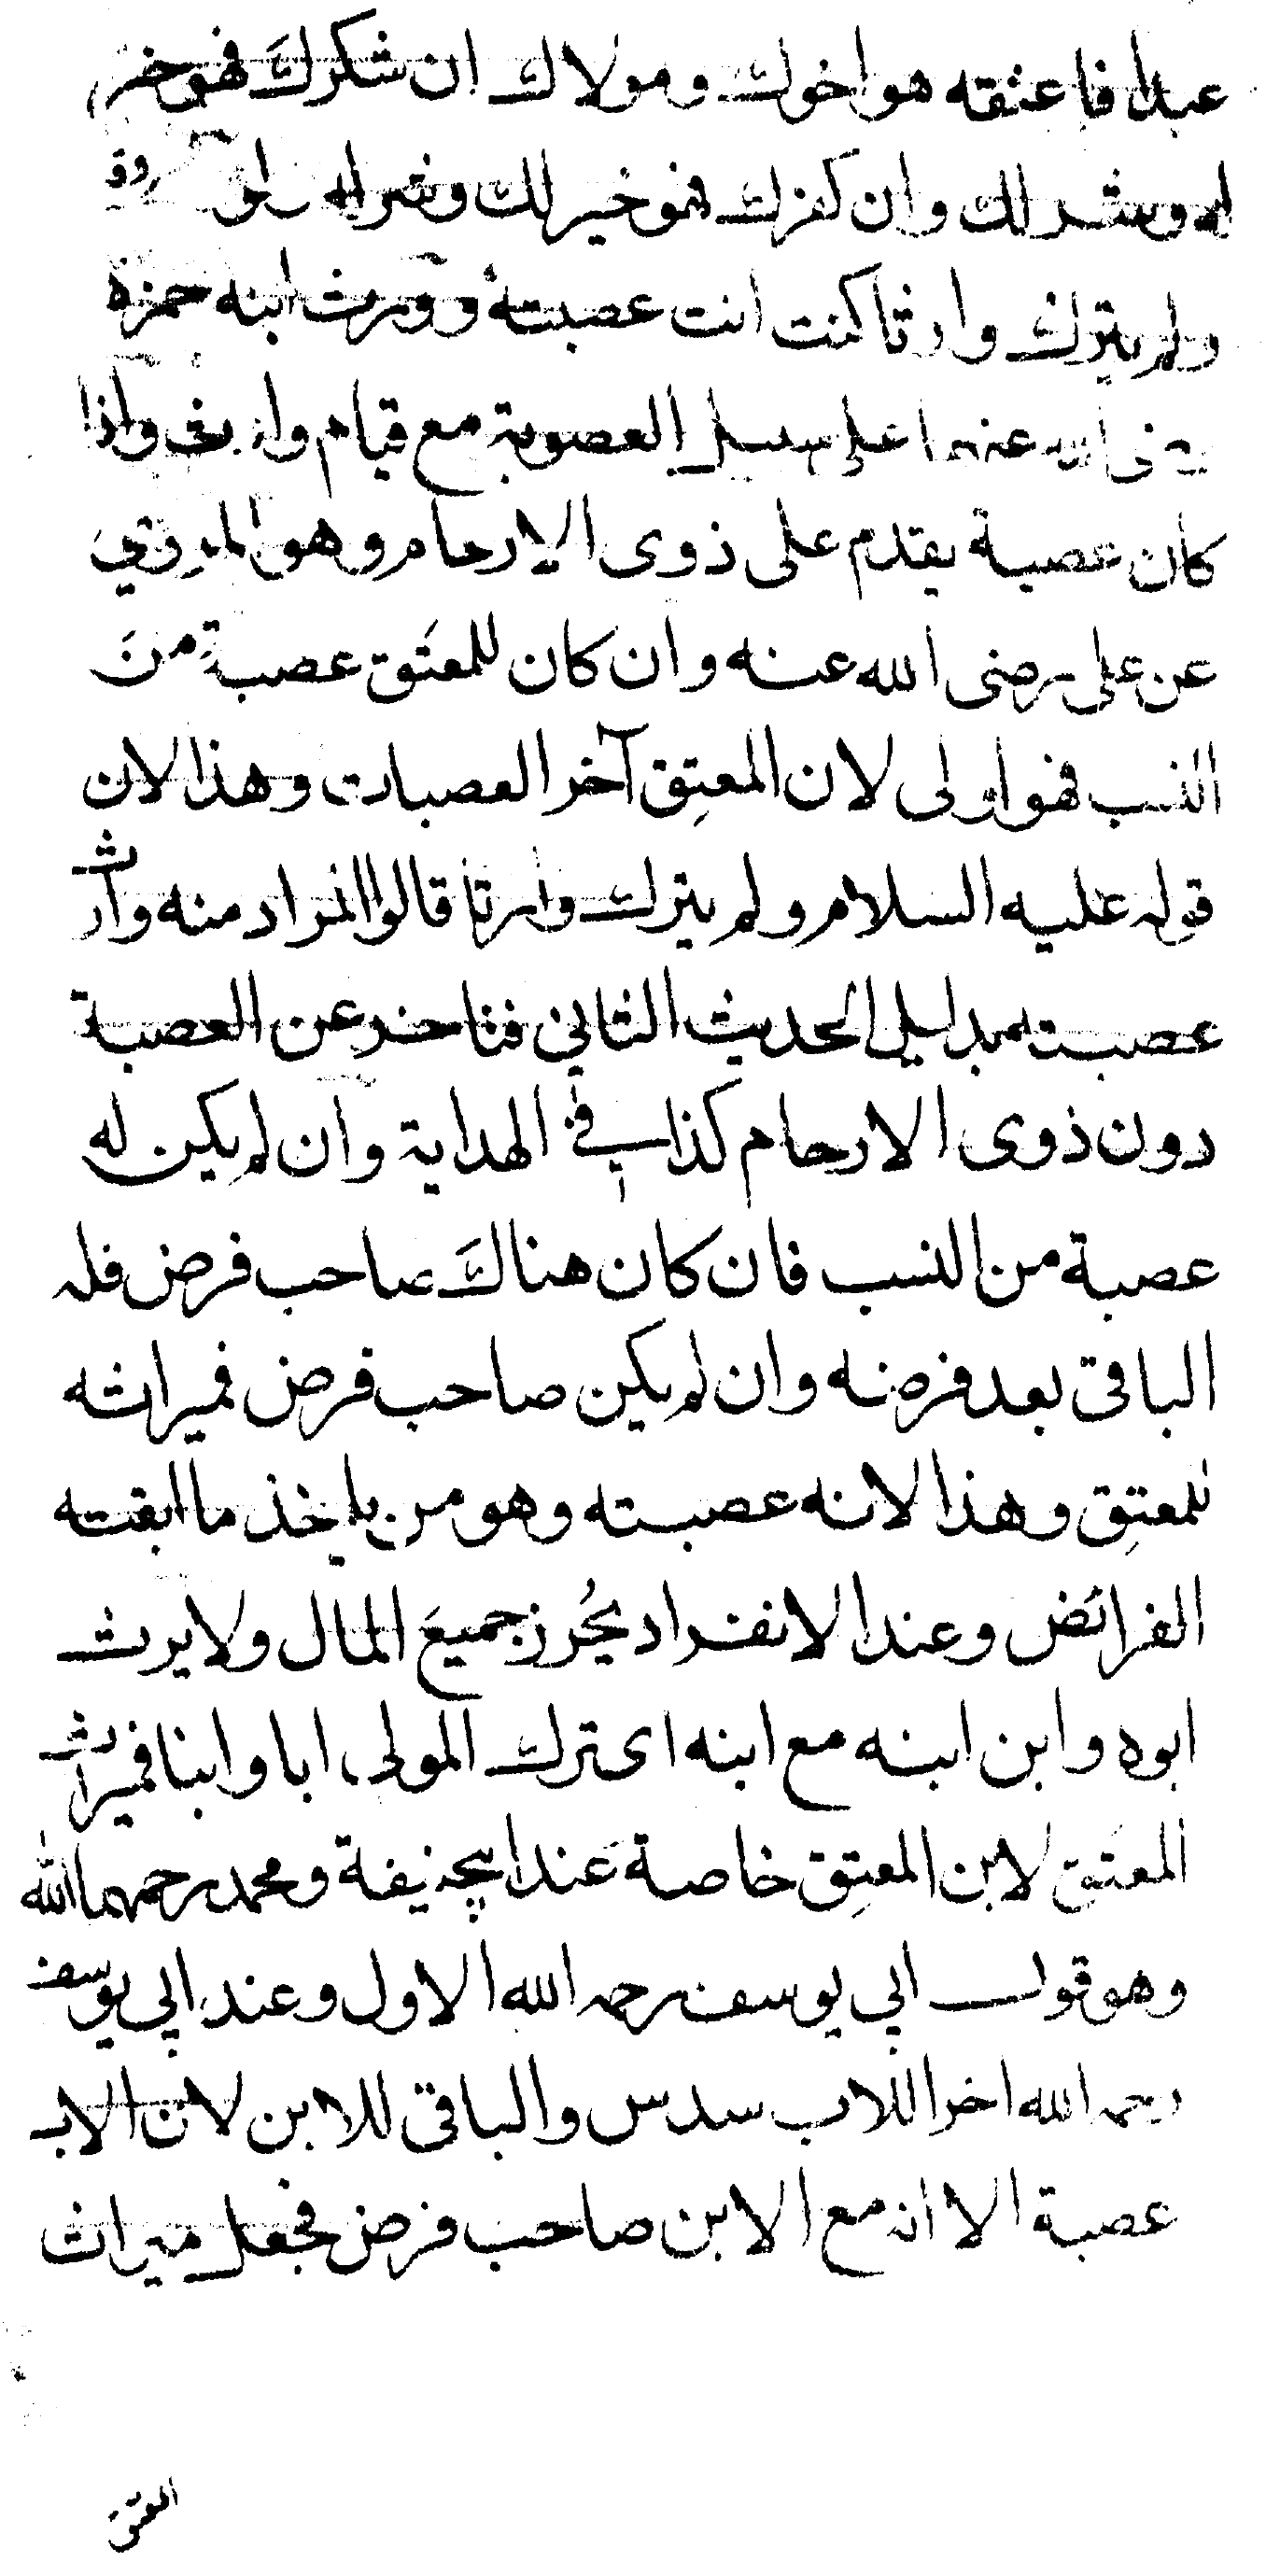 عبدا فاعتقه هو اخوك ومولاك ان شكرك فهو خير
له وشر لك وان كفرك فهو خير لك وشر له ولو
ولم يترك وارثا كنت انت عصبته وورث ابنه حمزة
رضى الله عنهما على سبيل العصوبة مع قيام وارث واذا
كان عصبة يقدم على ذوى الارحام وهو المروي
عن على رضى الله عنه وان كان للمعتَق عصبة من
النسب فهو اولى لان المعتِق آخر العصبات وهذا لان
قوله عليه السلام ولم يترك وارثا قالوا المراد منه وارث
عصبته بدليل الحديث الثاني فتاخر عن العصبة
دون ذوى الارحام كذا في الهداية وان لم يكن له
عصبة من النسب فان كان هناك صاحب فرض فله
الباقى بعد فرضه وان لم يكن صاحب فرض فميراثه
للمعتِق وهذا لانه عصبته وهو من ياخذ ما ابقته
الفرائض وعند الانفراد يُحرز جميع المال ولا يرث
ابوه وابن ابنه مع ابنه اى ترك المولى ابا وابنا فميراث
المعتَق لابن المعتِق خاصة عند ابيحنيفة ومحمد رحمهما الله
وهو قول ابي يوسف رحمه الله الاول وعند ابي يوسف
رحمه الله اخرا للاب سدس والباقى للابن لان الاب
عصبة الا انه مع الابن صاحب فرض فجعل ميراث
المعتق